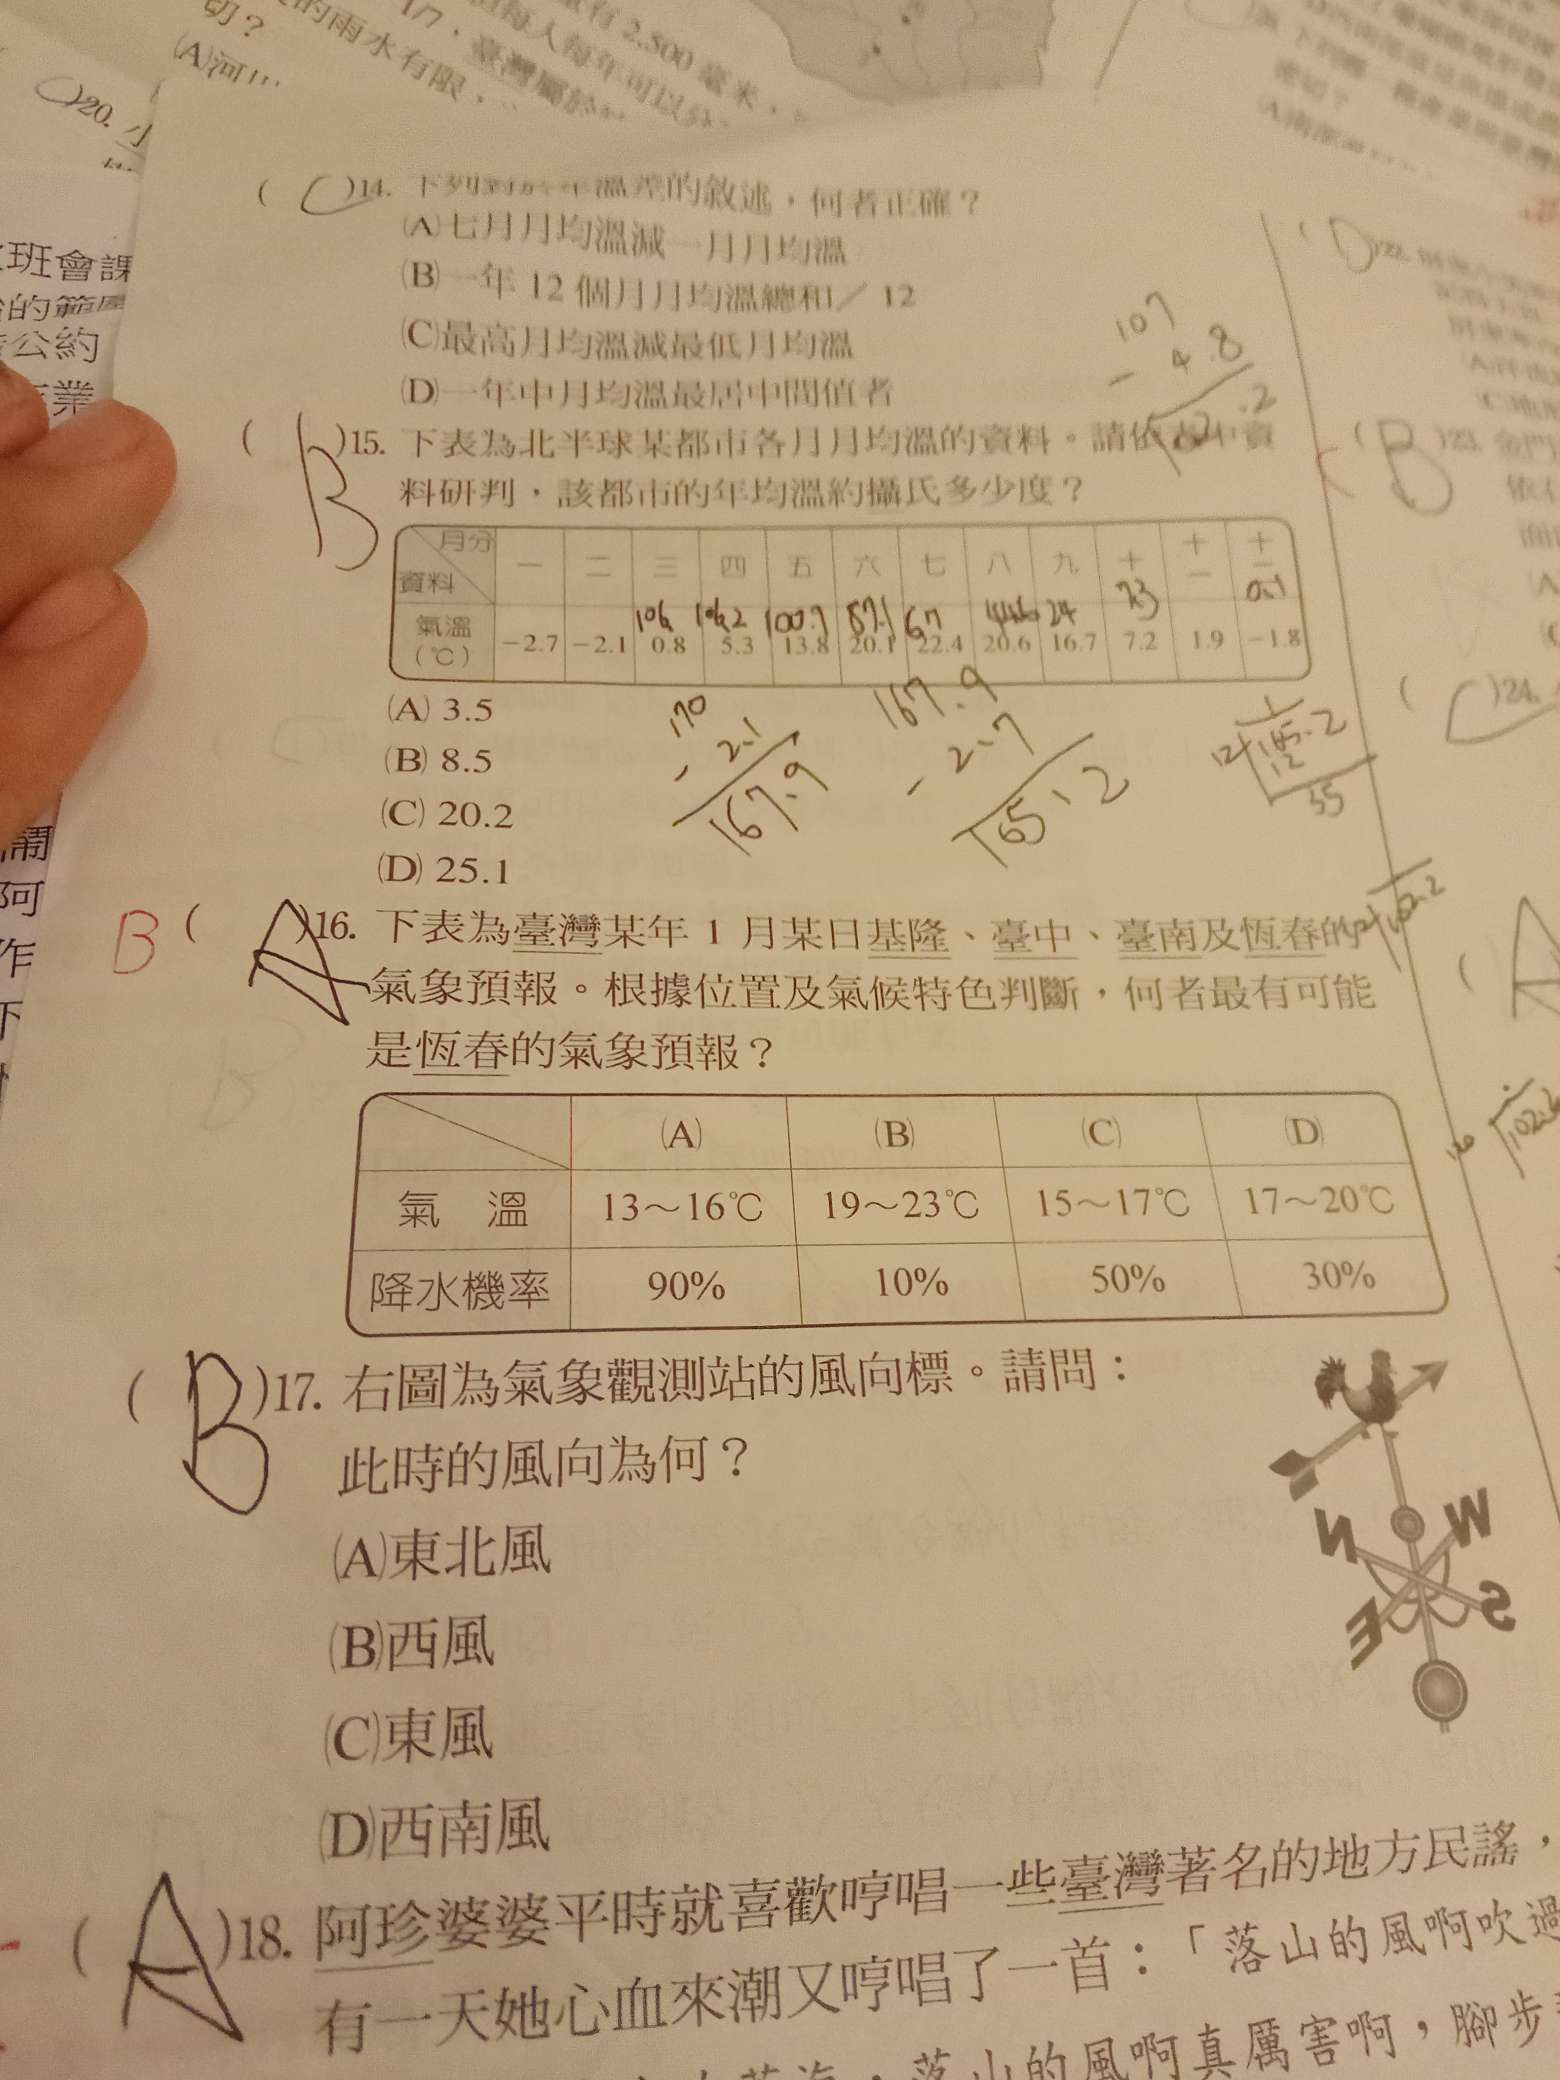 切？
(A)河
的雨水有限，
17，臺灣屬於
有2,500毫米，
)20. 小
班會課
的範圍
公約
業
鬧
阿
作
下
( C )14. 下列對於年溫差的敘述，何者正確？
(A)七月月均溫減一月月均溫
(B)一年 12 個月月均溫總和／ 12
(C)最高月均溫減最低月均溫
(D)一年中月均溫最居中間值者
107
- 4.8
102.2
( B )15. 下表為北半球某都市各月月均溫的資料。請依表中資
料研判，該都市的年均溫約攝氏多少度？
月分 資料 一 二 三 四 五 六 七 八 九 十 十一 十二
106 106.2 100.7 87.1 67 44.6 24 7.3 0.1
氣溫(℃) −2.7 −2.1 0.8 5.3 13.8 20.1 22.4 20.6 16.7 7.2 1.9 −1.8
(A) 3.5
(B) 8.5
(C) 20.2
(D) 25.1
170
- 2.1
167.9
167.9
- 2.7
165.2
B ( A )16. 下表為臺灣某年 1 月某日基隆、臺中、臺南及恆春的
氣象預報。根據位置及氣候特色判斷，何者最有可能
是恆春的氣象預報？
(A) (B) (C) (D)
氣 溫 13～16℃ 19～23℃ 15～17℃ 17～20℃
降水機率 90% 10% 50% 30%
( B )17. 右圖為氣象觀測站的風向標。請問：
此時的風向為何？
(A)東北風
(B)西風
(C)東風
(D)西南風
N W
E S
( A )18. 阿珍婆婆平時就喜歡哼唱一些臺灣著名的地方民謠，
有一天她心血來潮又哼唱了一首：「落山的風啊吹過
落山的風啊真厲害啊，腳步
( D )22.
( B )23. 金門
( C )24.
( A
102.2